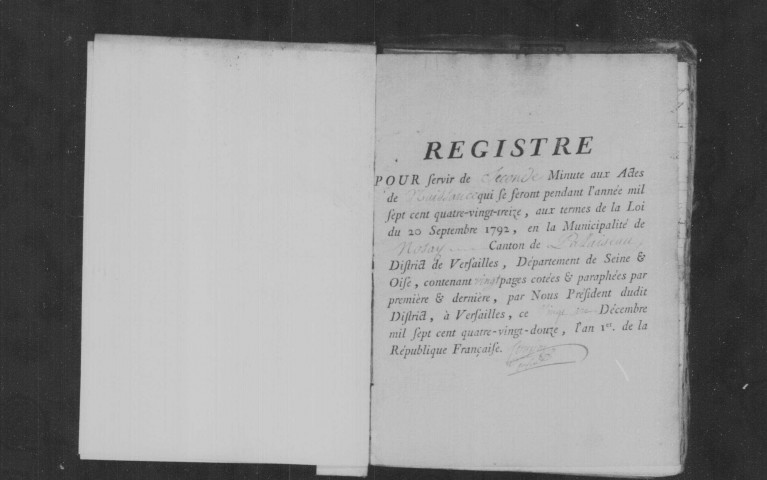 REGISTRE
POUR servir de Seconde Minute aux Actes
de Naissance qui se seront pendant l'année mil
sept cent quatre-vingt-treize, aux termes de la Loi
du 20 Septembre 1792, en la Municipalité de
Nozay Canton de Palaiseau,
District de Versailles, Département de Seine &
Oise, contenant vingt pages cotées & paraphées par
première & dernière, par Nous Président dudit
District, à Versailles, ce Décembre
mil sept cent quatre-vingt-douze, l'an 1er. de la
République Française.